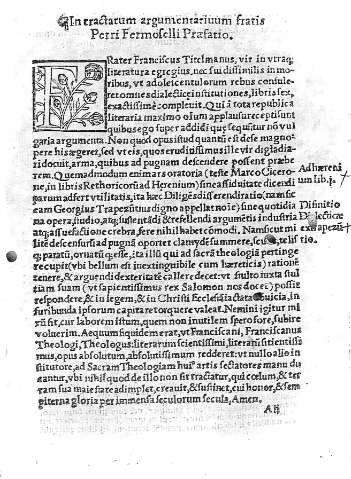 ¶In tractatum argumentatiuum fratis
Petri Fermoselli Præfatio.
FRater Franciscus Titelmanus, vir in vtraq;
literatura egregius, nec sui dissimilis in mo-
ribus, vt adolescentulorum rebus consule-
ret omnes dialecticæ institutiones, libris sex,
exactissime compleuit. Qui à tota republica
literaria maximo olim applausu recepti sunt
quibus ego super addidi quæ sequũtur nõ vul
garia argumenta. Non quod opus istud quantũ est de se magno-
pere his egeret, sed vt eis, quos erudiuissimus ille vir digladia-
ri docuit, arma, quibus ad pugnam descendere possent præbe-
rem. Quemadmodum enim ars oratoria (teste Marco Cicero-
ne, in libris Rethoricorũ ad Herenium) sine assiduitate dicendi
parum adfert vtilitatis, ita hæc Diligẽs disserendi ratio (nam sic
eam Georgius Trapezũtius digno appellat noĩe) sine quotidia
na opera, studio, atq; iussentãdi & refellendi argumẽtis industria
atq; assuefactione crebra, fere nihil habet cõmodi. Nam sicut mi
lite descensurũ ad pugnã oportet clamyde summere,
q; paratũ, ornatũ q; esse, ita illũ qui ad sacrã theologiã pertinge
re cupit (vbi bellum est inextinguibile cum hæreticis) rationẽ
tenere, & arguendi dexteritatẽ callere decet: vt stulto iuxta stul
tiam suam (vt sapientissimus rex Salomon nos docet) possit
respondere, & in legem, & in Christi Ecclesiã iactata conuicia, in
furibunda ipsorum capita retorquere valeat. Nemini igitur mi
rũ sit, cur laborem istum, quem non inutilem spero fore, subire
voluerim. Aequum siquidem erat, vt Franciscani, Franciscanus
Theologi, Theologus: literarum scientissimi, literarũ scientissi
mus, opus absolutum, absolutissimum redderet: vt nullo alio in
stitutore, ad Sacram Theologiam huius artis sectatores manu du
cantur, vbi nihil quod de illo non sit tractatur, qui cœlum, & ter
ram sua maiestate adimplet, creauit, & sustinet, cui honor, & sem
piterna gloria per immensa seculorum secula, Amen.
A ij
Ad hæreni
um lib. j.
Difinitio
Dialecticæ
ex trapezũ
tio.